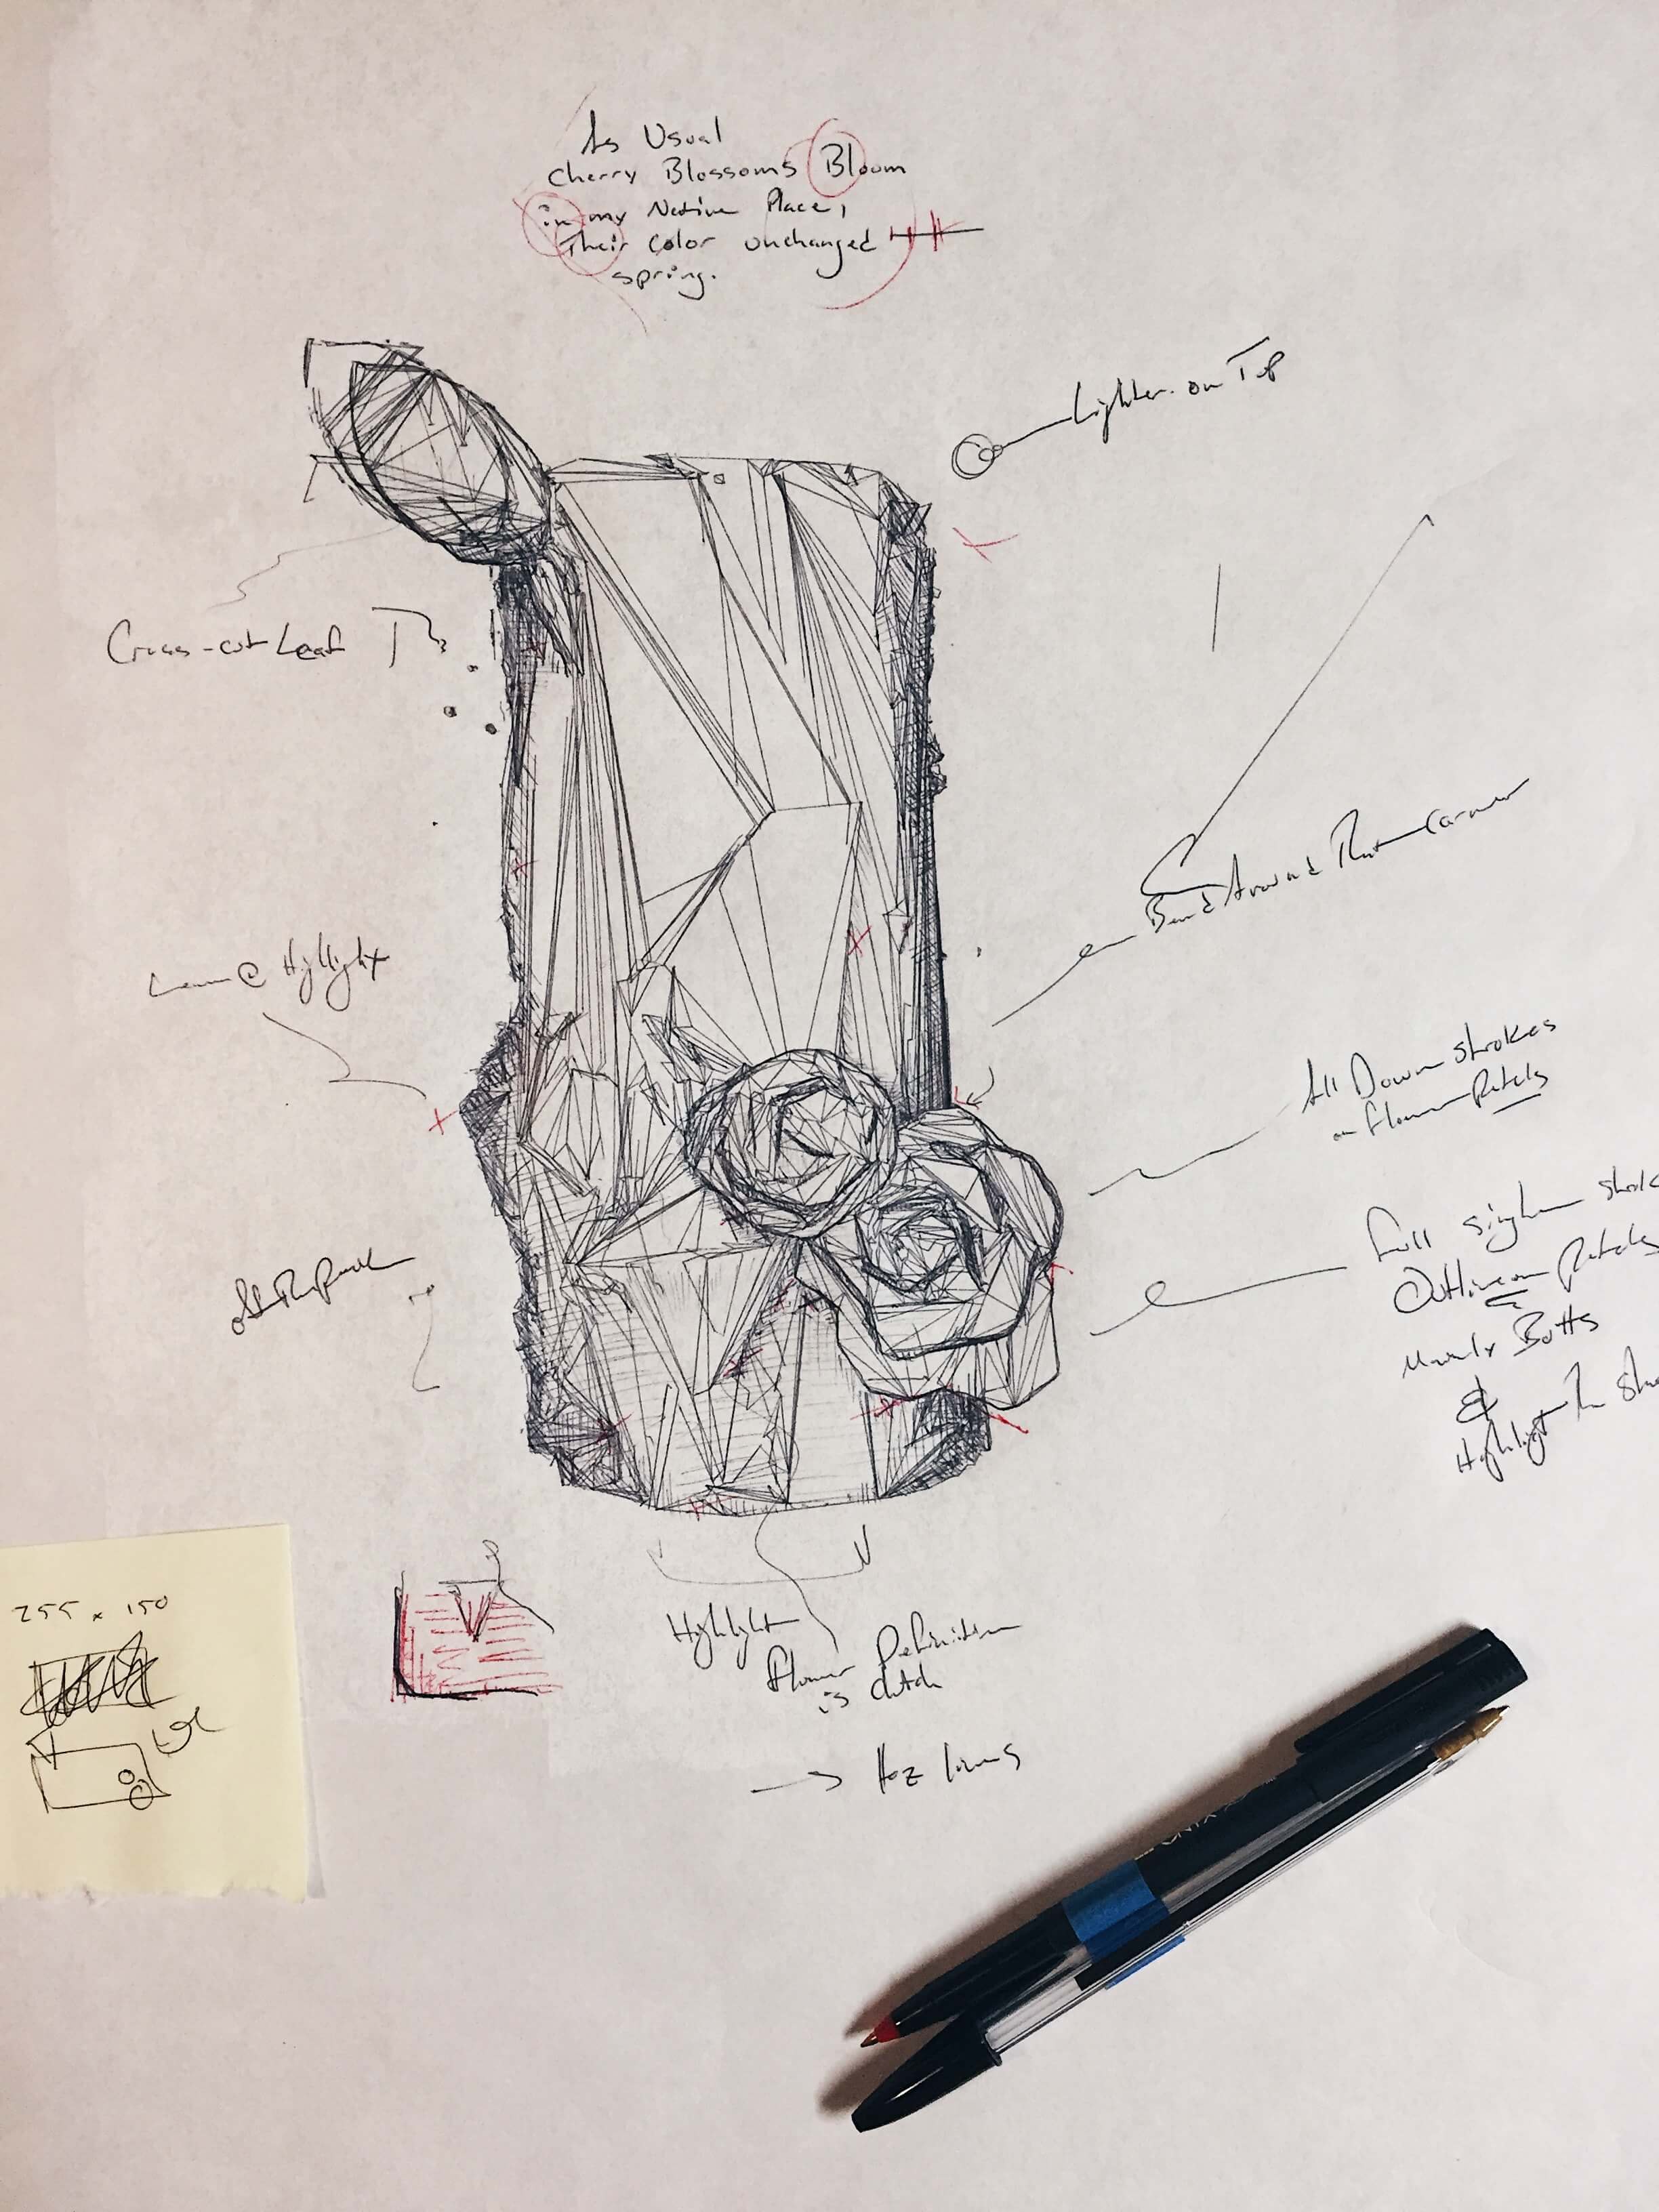 As Usual
Cherry Blossoms Bloom
in my Native Place,
Their Color unchanged
spring.
Lighter on Top
Cross-cut Leaf
Bend Around That Corner
@ Highlight
All Down Strokes
on flower Petals
full single
Outline on Petals
Mainly Butts
&
Highlight
255 x 150
Highlight
flower Definition
is clutch
Hoz lines